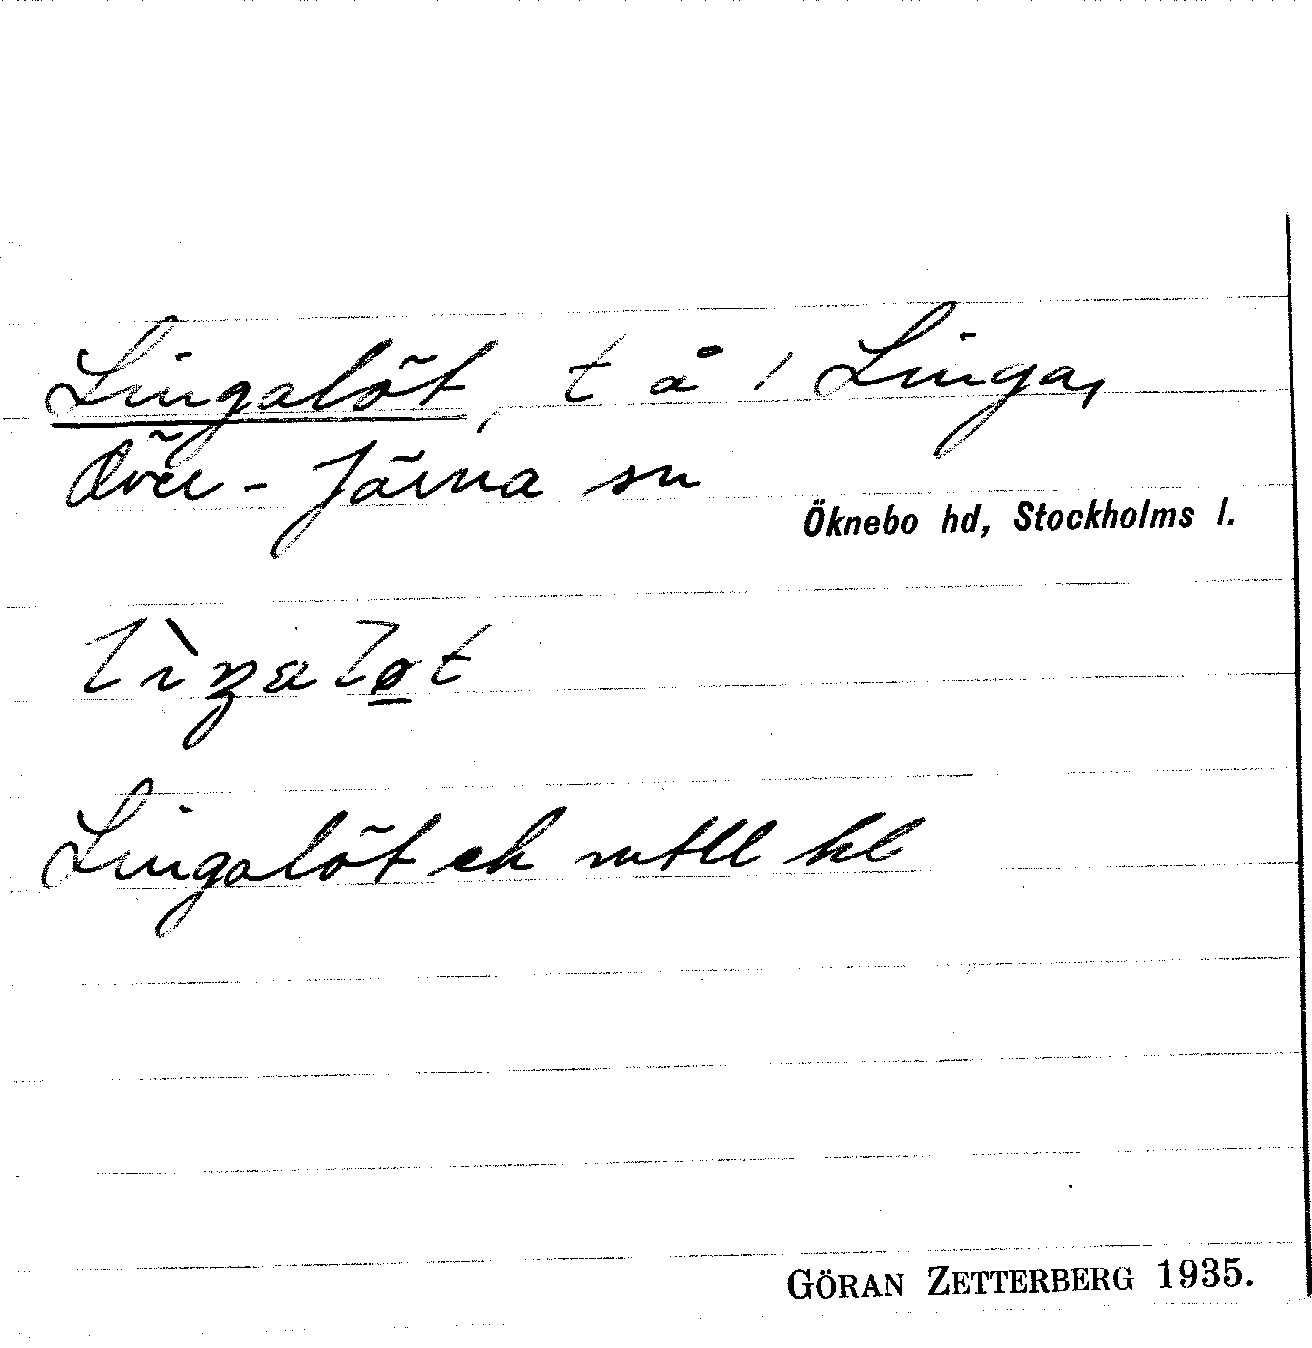 Lingalöt, t å 1 Linga,
Över-Järna sn
Öknebo hd, Stockholms l.
Lingalöt ek mtll kl
GÖRAN ZETTERBERG 1935.